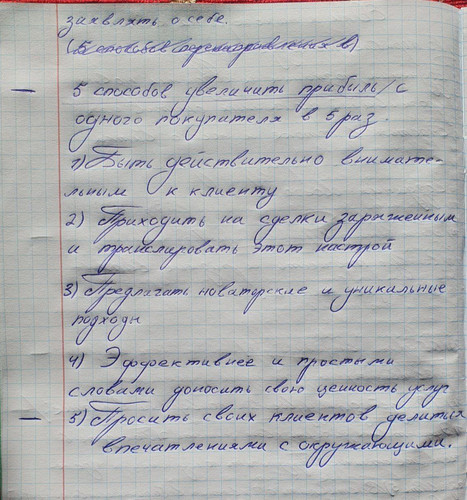 заявлять о себе.
5 способов увеличить прибыль/с
одного покупателя в 5 раз.
1) Быть действительно внимате-
льным к клиенту
2) Приходить на сделки заряженным
и транслировать этот настрой
3) Предлагать новаторские и уникальные
подходы
4) Эффективнее и простыми
словами доносить свою ценность услуг
5) Просить своих клиентов делиться
впечатлениями с окружающими.